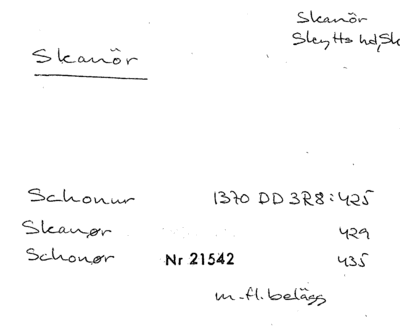 Skanör
Skytts hd, Sk
Skanör
Schonur 1370 DD 3R8:425
Skanør 429
Schonør Nr 21542 435
m.fl. belägg